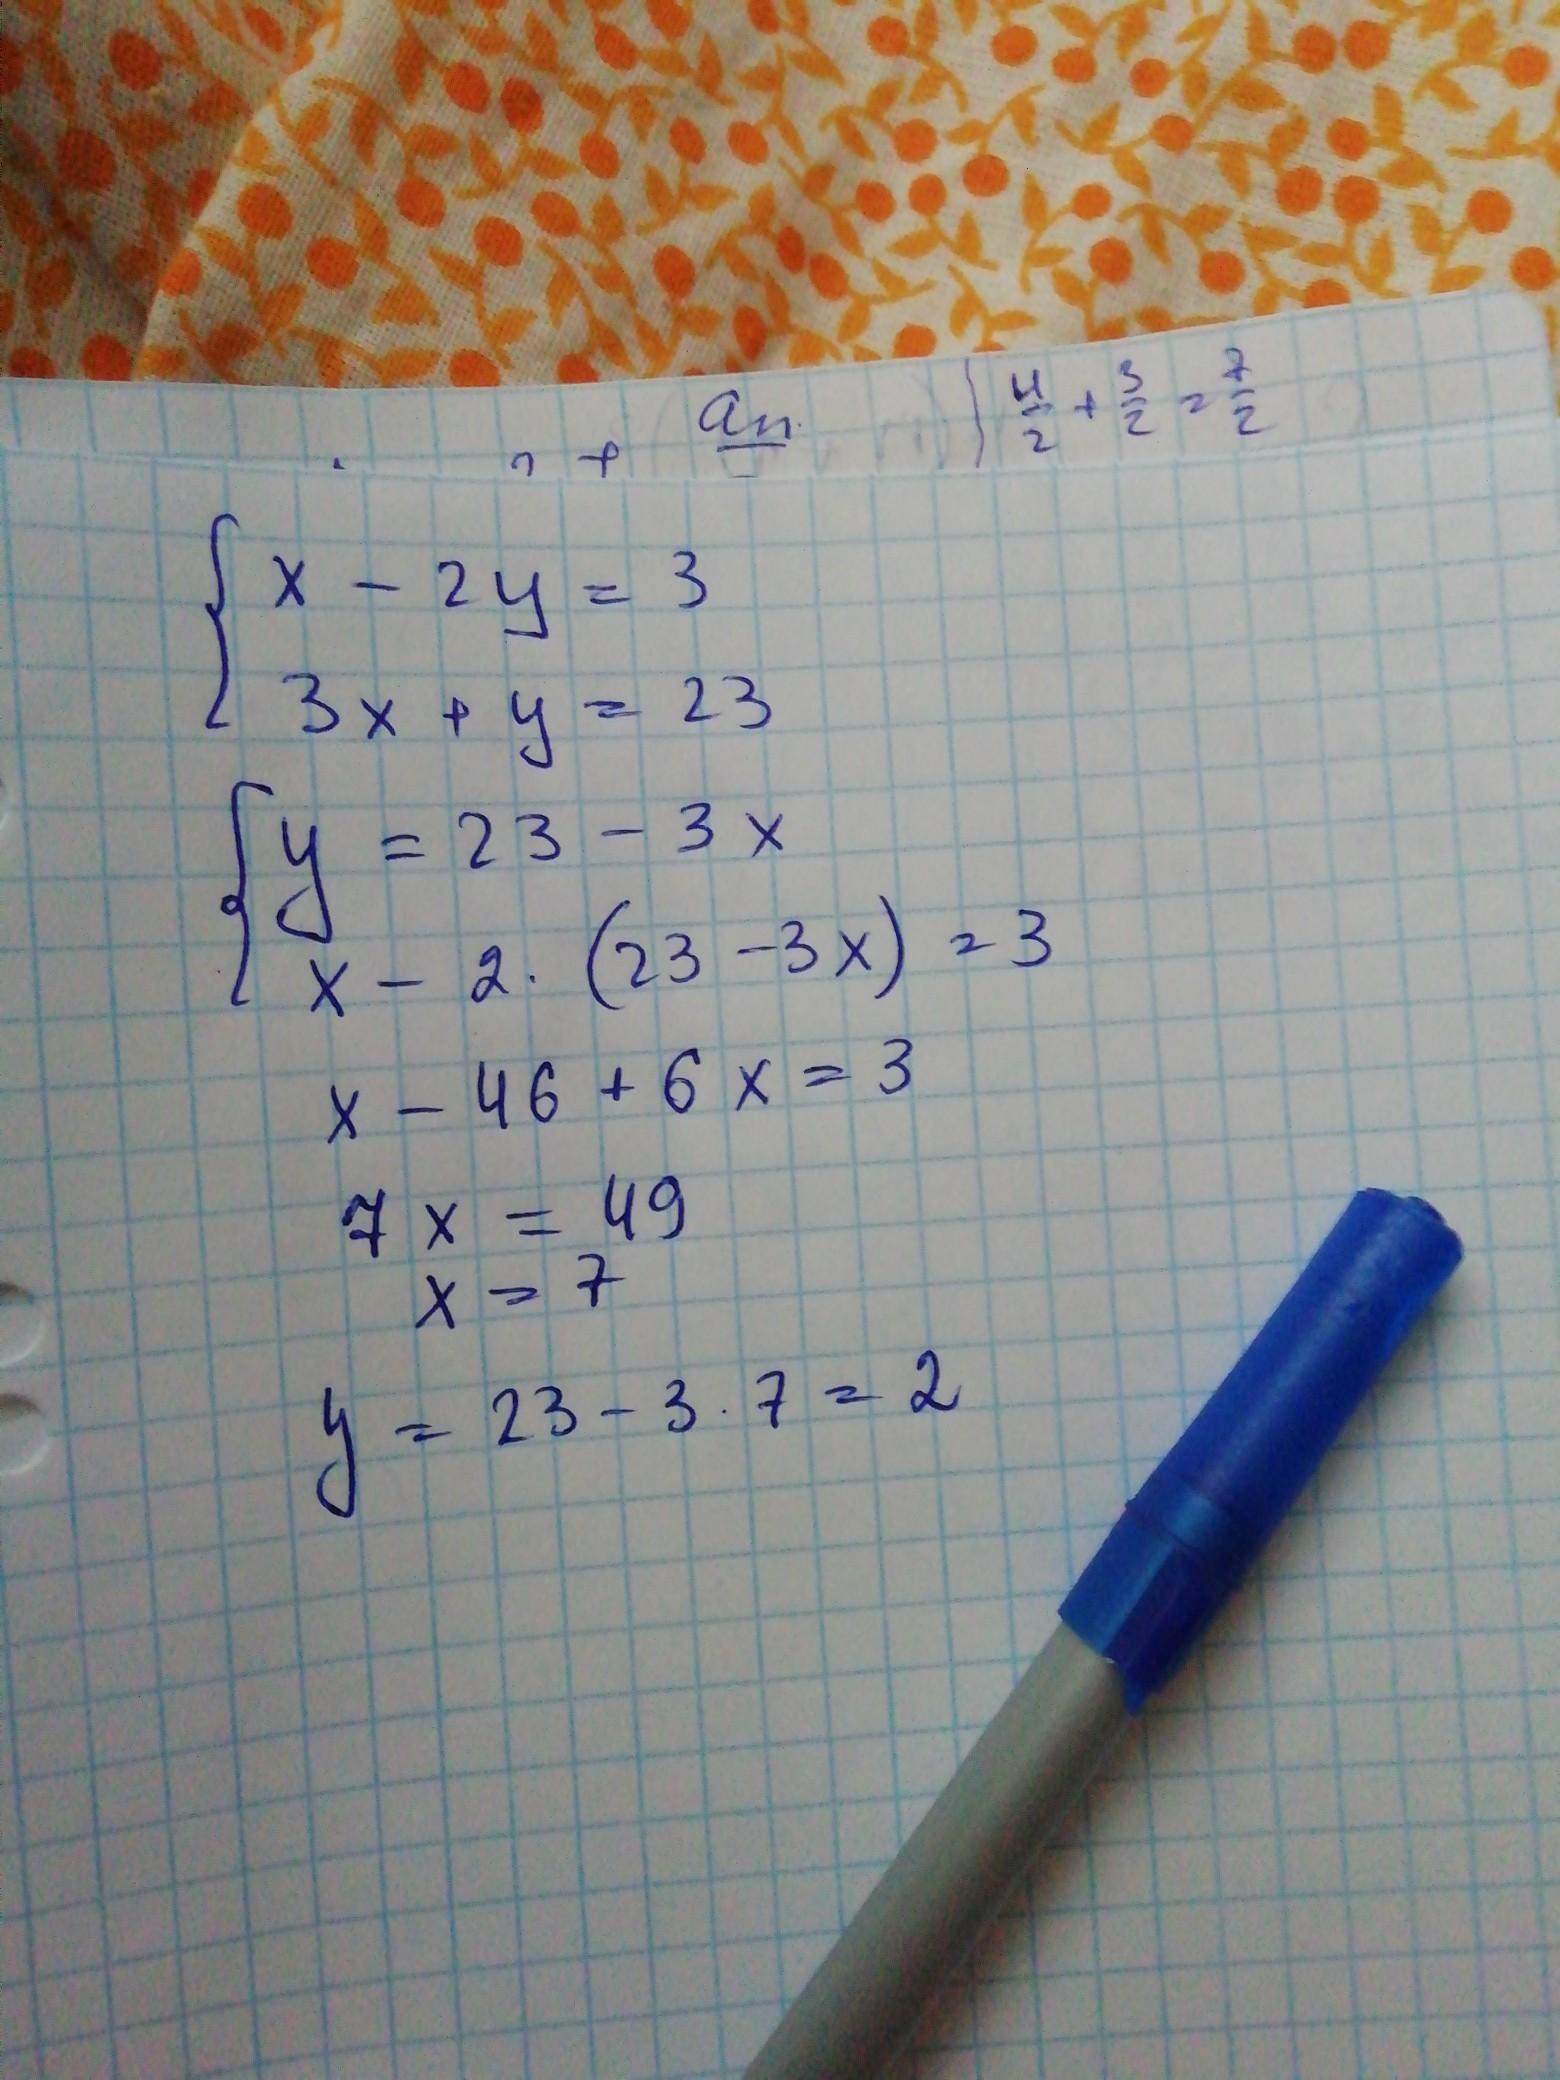 an } 4/2 + 3/2 = 7/2
+
{ x - 2y = 3
3x + y = 23
{ y = 23 - 3x
x - 2 · (23 - 3x) = 3
x - 46 + 6x = 3
7x = 49
x = 7
y = 23 - 3 · 7 = 2